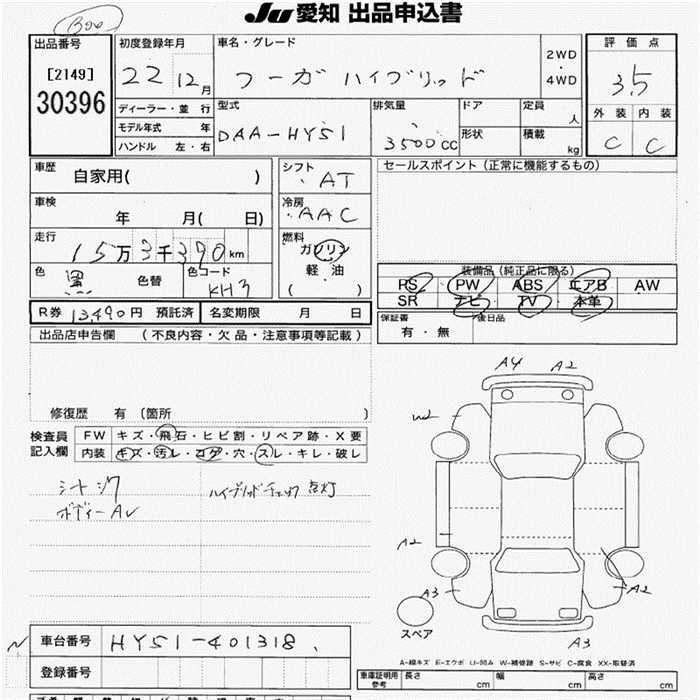 Ju 愛知 出品申込書
出品番号
[2149]
30396
初度登録年月
22年12月
ディーラー・並行
モデル年式 年
ハンドル 左・右
車名・グレード
フーガ ハイブリッド
2WD
・
4WD
評価点
3.5
外装 内装
C C
型式
DAA-HY51
排気量
3500CC
ドア
形状
定員
人
積載
kg
車歴
自家用( )
車検
年 月( 日)
走行
15万3千390km
色
黒
色替
色コード
KH3
シフト
AT
冷房
AAC
燃料
ガソリン
軽油
( )
セールスポイント(正常に機能するもの)
装備品(純正品に限る)
PS PW ABS エアB AW
SR ナビ TV 本革
R券 13,490円 預託済
名変期限 月 日
保証書
有・無
後日品
出品店申告欄 (不良内容・欠品・注意事項等記載)
修復歴 有(箇所 )
検査員
記入欄
FW キズ・飛石・ヒビ割・リペア跡・X要
内装 キズ・汚レ・コゲ・穴・スレ・キレ・破レ
シートシワ
ボディーAU
ハイブリッドチェック点灯
A4 A2
W2
A2
A3
A2
A3
スペア
A-線キズ E-エクボ U-凹み W-補修跡 S-サビ C-腐食 XX-取替済
車台番号 HY51-401318
登録番号
車庫証明用
参考
長さ cm
幅 cm
高さ cm